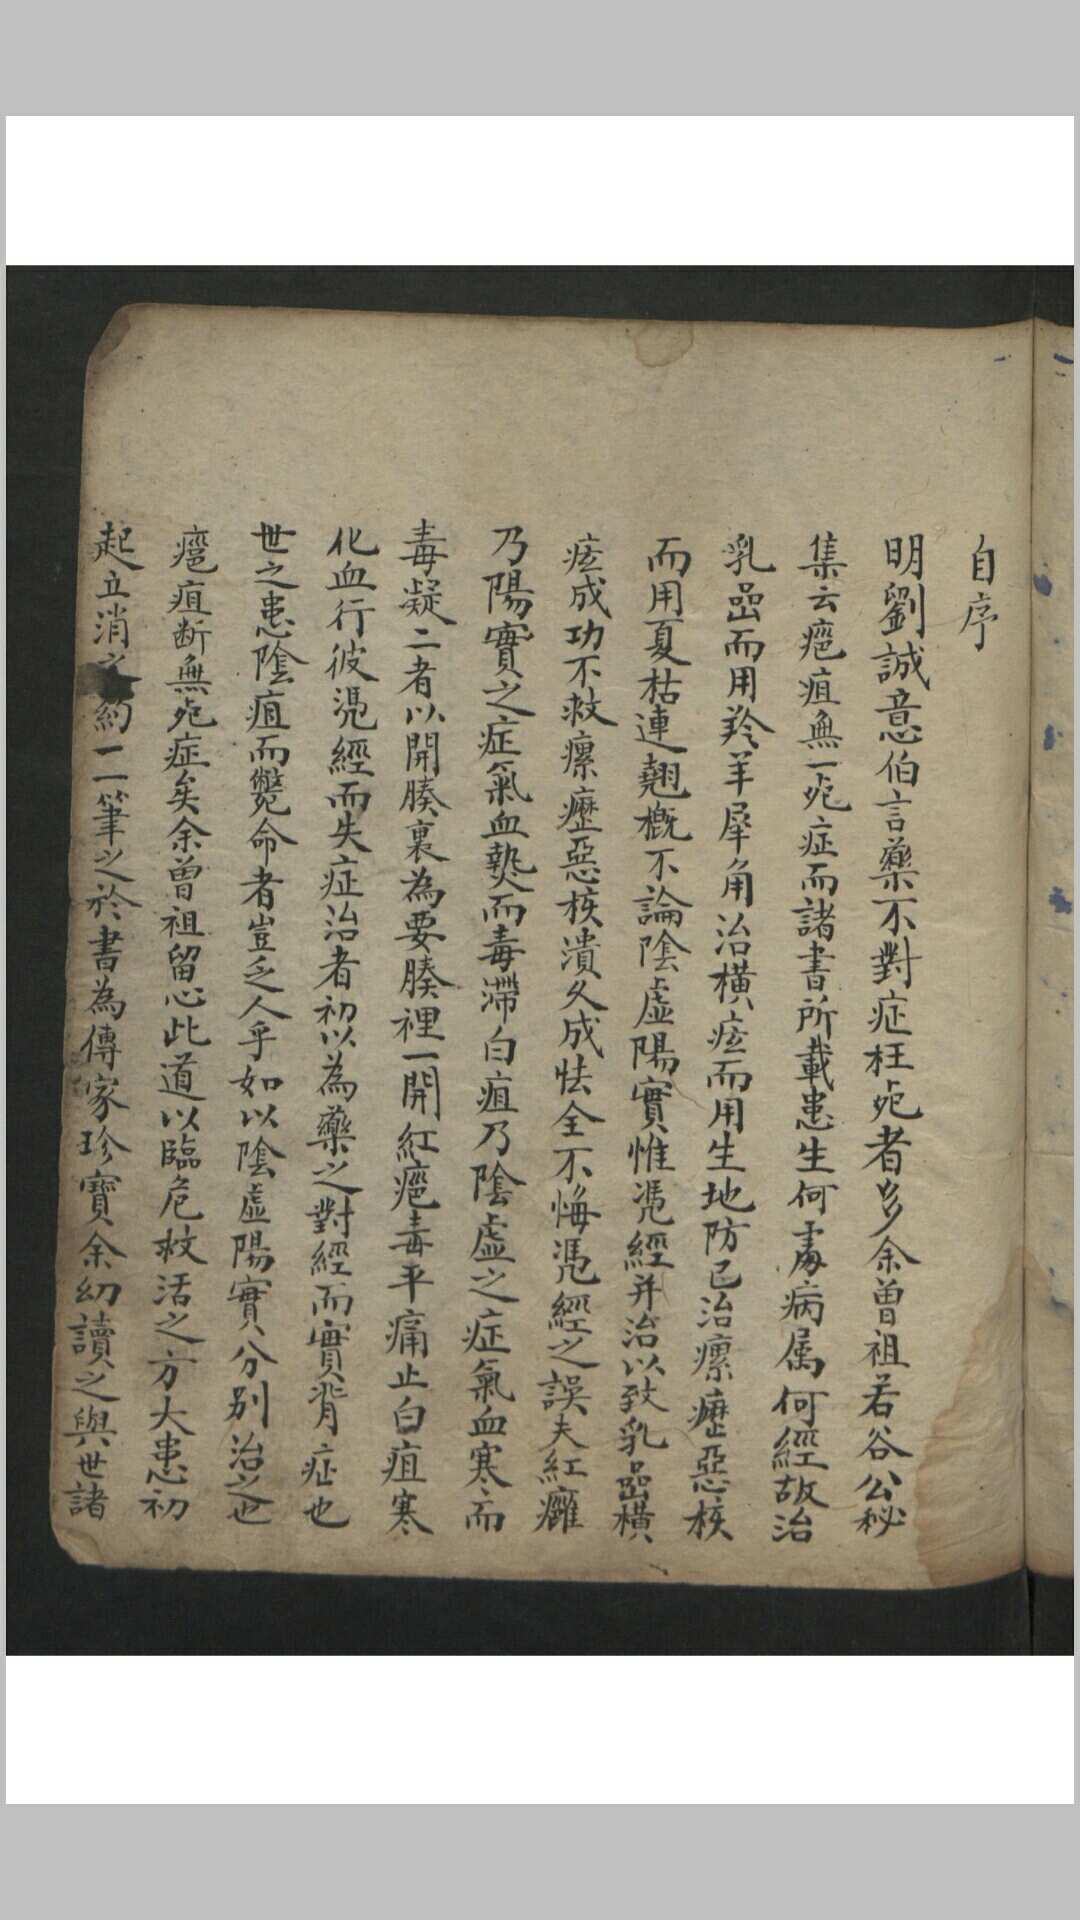 自序
明劉誠意伯言藥不對症枉死者多余曾祖若谷公秘
集云癰疽無一死症而諸書所載患生何處病属何經故治
乳嵒而用羚羊犀角治橫痃而用生地防已治瘰癧惡核
而用夏枯連翹概不論陰虛陽實惟凴經并治以致乳嵒橫
痃成功不救瘰癧惡核潰久成怯全不悔凴經之誤夫紅癰
乃陽實之症氣血熱而毒滯白疽乃陰虛之症氣血寒而
毒凝二者以開腠裏為要腠裡一開紅癰毒平痛止白疽寒
化血行彼凴經而失症治者初以為藥之對經而實背症也
世之患陰疽而斃命者豈乏人乎如以陰虛陽實分別治之也
癰疽断無死症矣余曾祖留心此道以臨危救活之方大患初
起立消之約一一筆之於書為傳家珍寶余幼讀之與世諸